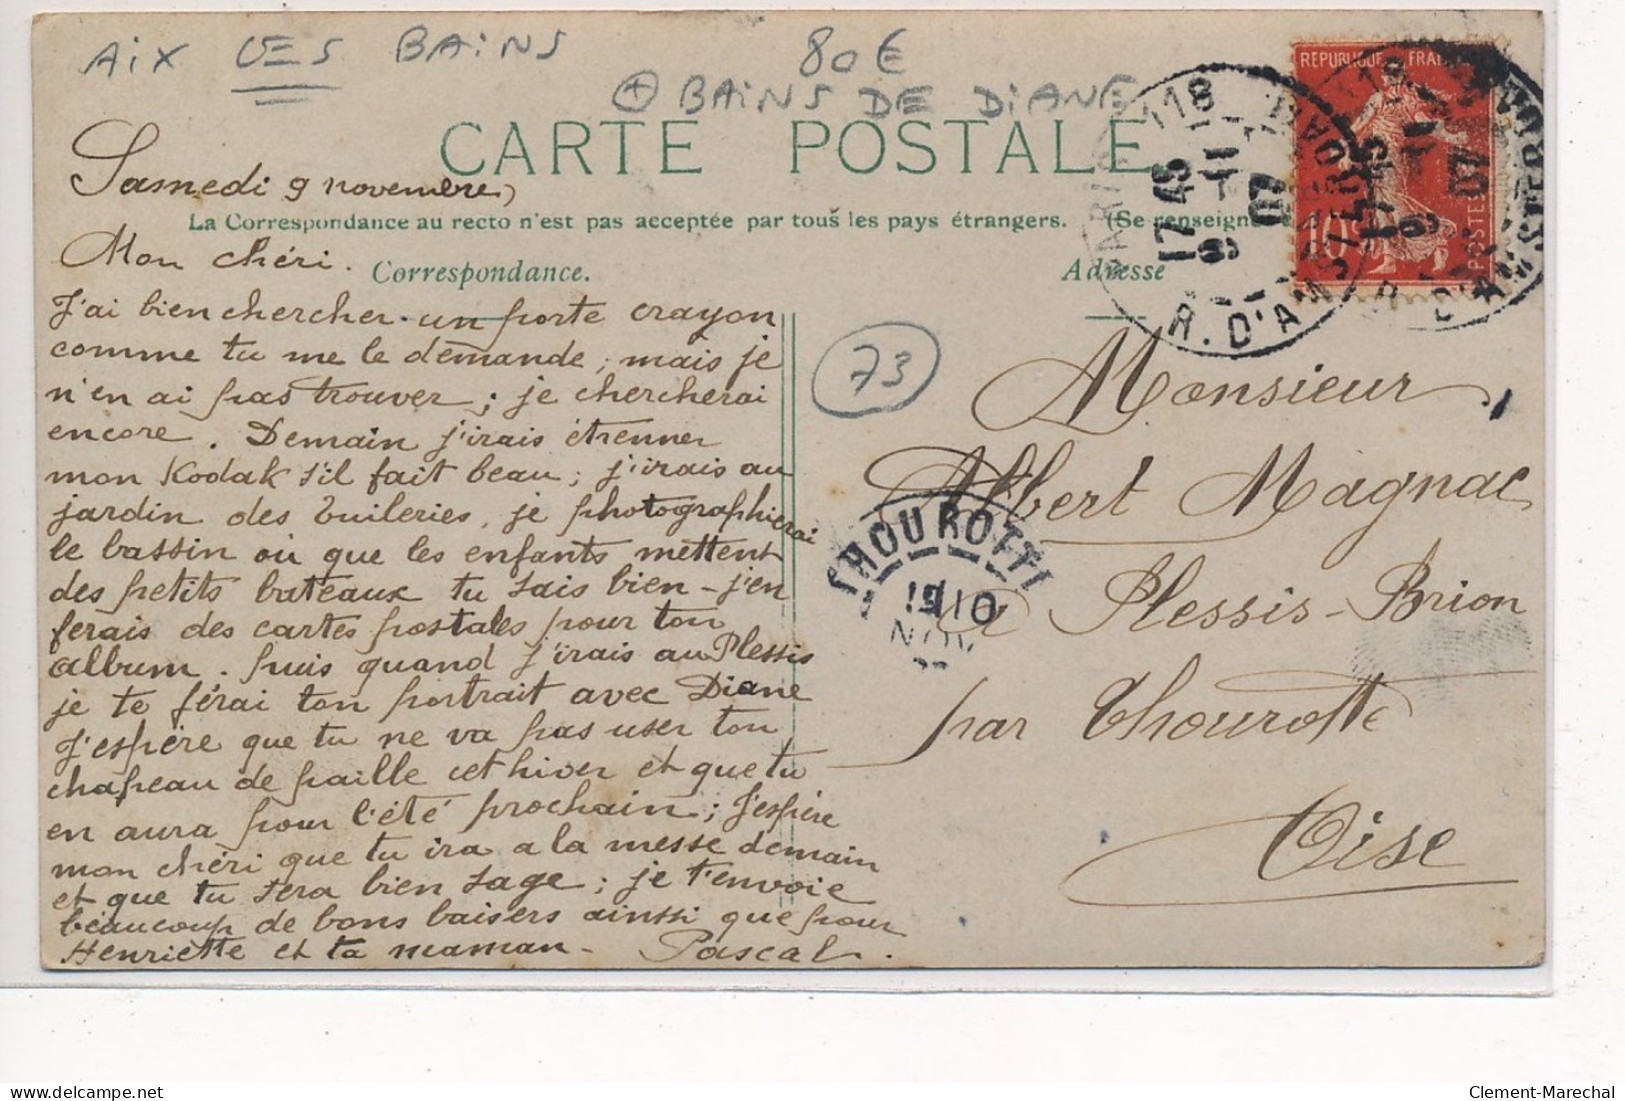 AIX LES BAINS
80€
+ BAINS DE DIANE
CARTE POSTALE
Samedi 9 novembre,
La Correspondance au recto n'est pas acceptée par tous les pays étrangers. (Se renseigne
Mon chéri.
Correspondance.
J'ai bien chercher un porte crayon
comme tu me le demande, mais je
n'en ai pas trouver; je chercherai
encore. Demain j'irais étrenner
mon Kodak s'il fait beau; j'irais au
jardin des Tuileries, je photographierai
le bassin où que les enfants mettent
des petits bateaux tu sais bien - j'en
ferais des cartes postales pour ton
album. puis quand j'irais au Plessis
je te ferai ton portrait avec Diane
J'espère que tu ne va pas user ton
chapeau de paille cet hiver et que tu
en aura pour l'été prochain; J'espère
mon chéri que tu ira a la messe demain
et que tu sera bien sage; je t'envoie
beaucoup de bons baisers ainssi que pour
Henriette et ta maman - Pascal.
Adresse
73
Monsieur
Albert Magnac
a Plessis-Brion
par Thourotte
Oise
REPUBLIQUE FRA
10
POSTES
PARIS 118
17 45
9 - 11
07
R. D'AMSTERDAM
17 45
9 11
07
R. D'AMSTERDAM
THOUROTTE
10
NOV
Clement-Marechal